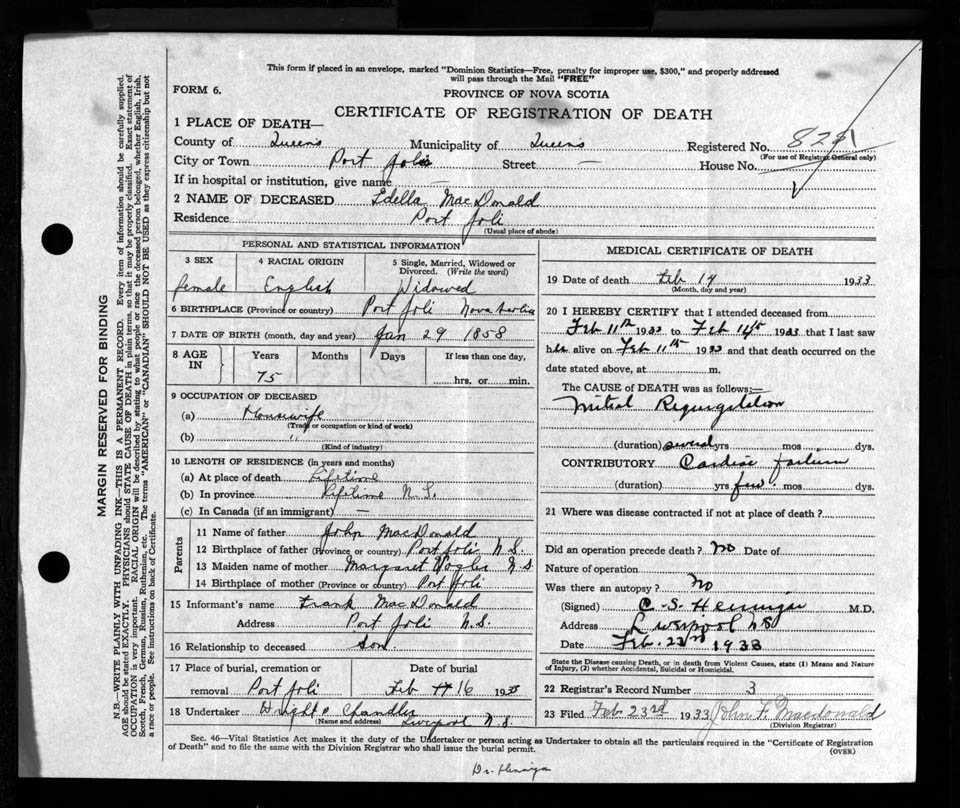 This form if placed in an envelope, marked "Dominion Statistics—Free, penalty for improper use, $300," and properly addressed
will pass through the Mail "FREE"
FORM 6.
PROVINCE OF NOVA SCOTIA
CERTIFICATE OF REGISTRATION OF DEATH
1 PLACE OF DEATH—
County of Queens Municipality of Queens Registered No.
(For use of Registrar General only)
City or Town Port Joli Street — House No.
If in hospital or institution, give name —
2 NAME OF DECEASED Edella MacDonald
Residence Port Joli
(Usual place of abode)
PERSONAL AND STATISTICAL INFORMATION
3 SEX 4 RACIAL ORIGIN 5 Single, Married, Widowed or
Divorced. (Write the word)
female English Widowed
6 BIRTHPLACE (Province or country) Port Joli Nova Scotia
7 DATE OF BIRTH (month, day and year) Jan 29 1858
8 AGE IN Years Months Days If less than one day,
75 hrs. or min.
9 OCCUPATION OF DECEASED
(a) Housewife
(Trade or occupation or kind of work)
(b) "
(Kind of industry)
10 LENGTH OF RESIDENCE (in years and months)
(a) At place of death Lifetime
(b) In province Lifetime N.S.
(c) In Canada (if an immigrant) —
Parents
11 Name of father John MacDonald
12 Birthplace of father (Province or country) Port Joli N.S.
13 Maiden name of mother Margaret Vogler N S
14 Birthplace of mother (Province or country) Port Joli
15 Informant's name Frank MacDonald
Address Port Joli N.S.
16 Relationship to deceased Son
17 Place of burial, cremation or Date of burial
removal Port Joli Feb 16 1933
18 Undertaker Wright & Chandler
(Name and address) Liverpool N.S.
MEDICAL CERTIFICATE OF DEATH
19 Date of death Feb 14 1933
(Month, day and year)
20 I HEREBY CERTIFY that I attended deceased from
Feb 11th 1933 to Feb 14th 1933 that I last saw
her alive on Feb 11th 1933 and that death occurred on the
date stated above, at m.
The CAUSE of DEATH was as follows:—
Mitral Regurgitation
(duration) several yrs mos dys.
CONTRIBUTORY Cardiac failure
(duration) yrs few mos dys.
21 Where was disease contracted if not at place of death?
Did an operation precede death? No Date of
Nature of operation
Was there an autopsy? No
(Signed) C. S. Hennigar M.D.
Address Liverpool NS
Date Feb. 23rd 1933
State the Disease causing Death, or in death from Violent Causes, state (1) Means and Nature
of Injury, (2) whether Accidental, Suicidal or Homicidal.
22 Registrar's Record Number 3
23 Filed Feb 23rd 1933 John F. Macdonald
(Division Registrar)
Sec. 46—Vital Statistics Act makes it the duty of the Undertaker or person acting as Undertaker to obtain all the particulars required in the "Certificate of Registration
of Death" and to file the same with the Division Registrar who shall issue the burial permit.
(OVER)
Dr. Hennigar
MARGIN RESERVED FOR BINDING
N.B.—WRITE PLAINLY WITH UNFADING INK—THIS IS A PERMANENT RECORD. Every item of information should be carefully supplied.
AGE should be stated EXACTLY. PHYSICIANS should STATE CAUSE OF DEATH in plain terms, so that it may be properly classified. Exact statement of
OCCUPATION is very important. RACIAL ORIGIN will be described by stating to what people or race the deceased person belonged, whether English, Irish,
Scotch, French, German, Russian, Ruthenian, etc. The terms "AMERICAN" or "CANADIAN" SHOULD NOT BE USED as they express citizenship but not
a race or people. See instructions on back of Certificate.